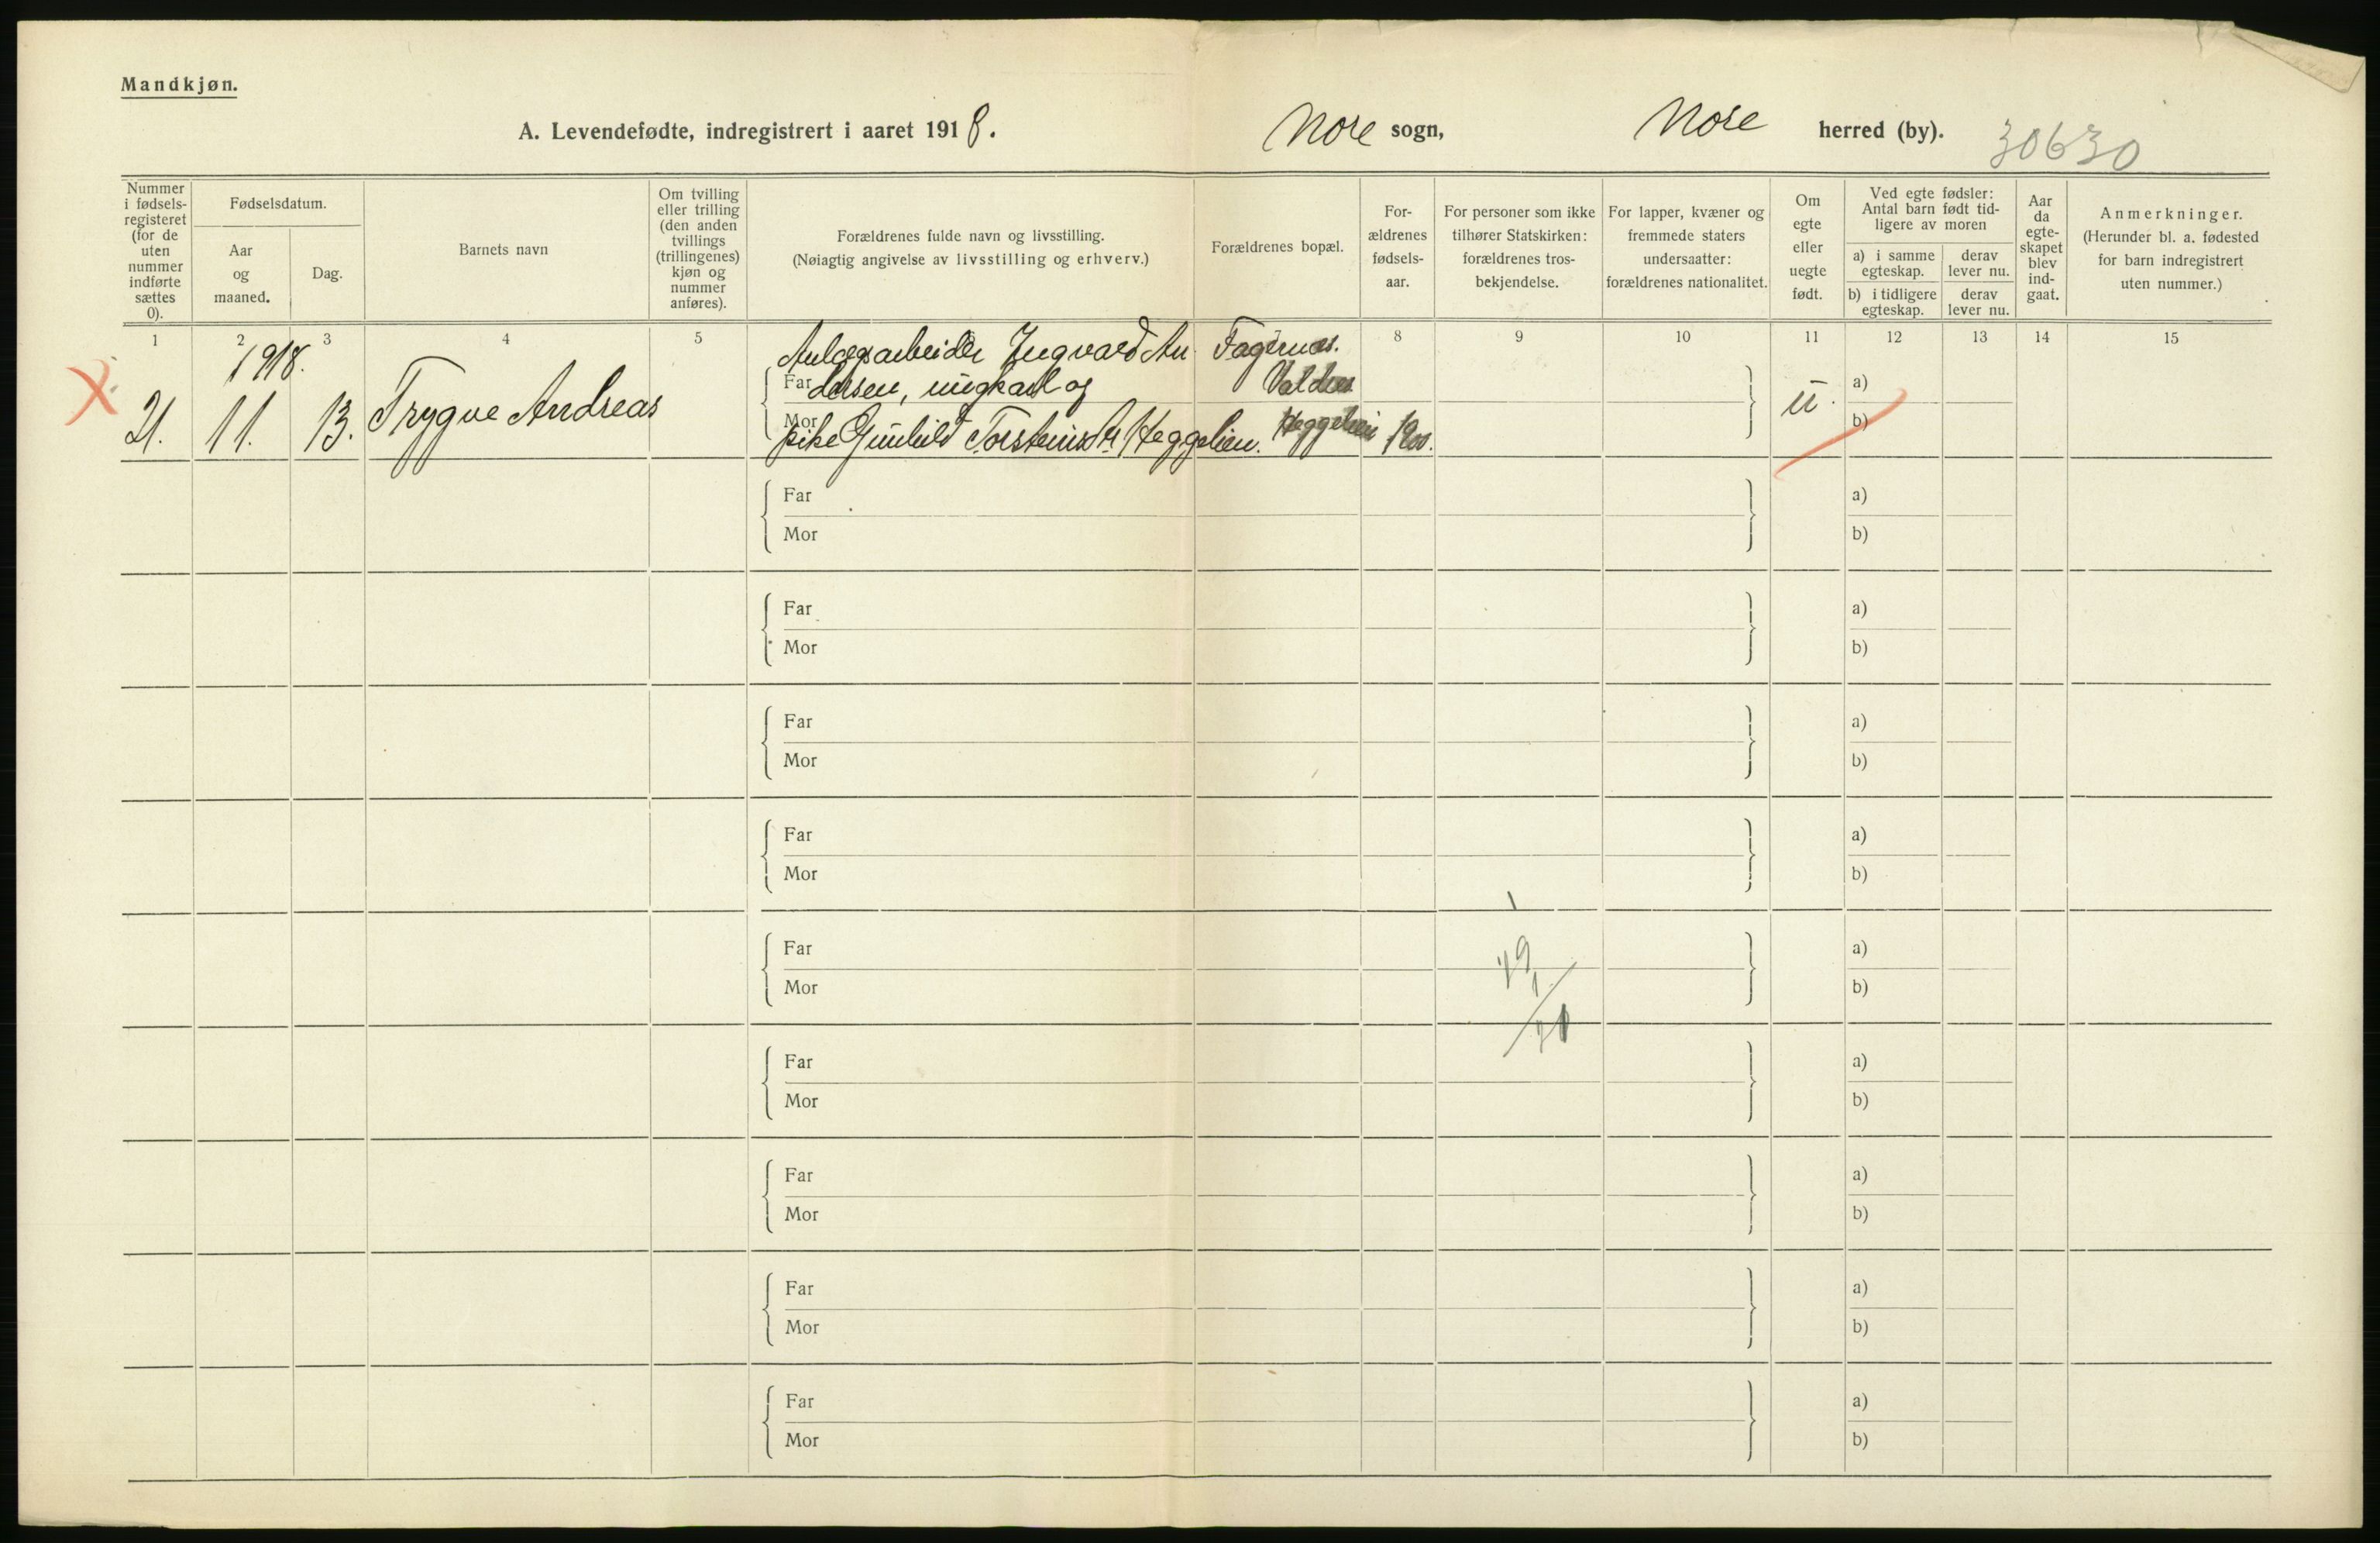 Mandkjøn.
A. Levendefødte, indregistrert i aaret 1918. Nore sogn, Nore herred (by). 30630
Nummer i fødselsregisteret (for de uten nummer indførte sættes 0).
Fødselsdatum.
Aar og maaned.
Dag.
Barnets navn
Om tvilling eller trilling (den anden tvillings (trillingenes) kjøn og nummer anføres).
Forældrenes fulde navn og livsstilling.
(Nøiagtig angivelse av livsstilling og erhverv.)
Forældrenes bopæl.
For-ældrenes fødsels-aar.
For personer som ikke tilhører Statskirken: forældrenes tros-bekjendelse.
For lapper, kvæner og fremmede staters undersaatter: forældrenes nationalitet.
Om egte eller uegte født.
Ved egte fødsler: Antal barn født tid-ligere av moren
a) i samme egteskap.
derav lever nu.
b) i tidligere egteskap.
derav lever nu.
Aar da egte-skapet blev ind-gaat.
Anmerkninger.
(Herunder bl. a. fødested for barn indregistrert uten nummer.)
1 2 3 4 5 8 9 10 11 12 13 14 15
1918.
Anlægsarbeider Ingvard An- Fagernæs.
Far dersen, ungkarl og Valdres a)
21. 11. 13. Trygve Andreas u.
Mor pike Gunhild Torsteinsdtr Heggelien. Heggelien 1900. b)
Far a)
Mor b)
Far a)
Mor b)
Far a)
Mor b)
Far a)
Mor b)
Far a)
Mor b)
Far a)
Mor b)
Far a)
Mor b)
Far a)
Mor b)
Far a)
Mor b)